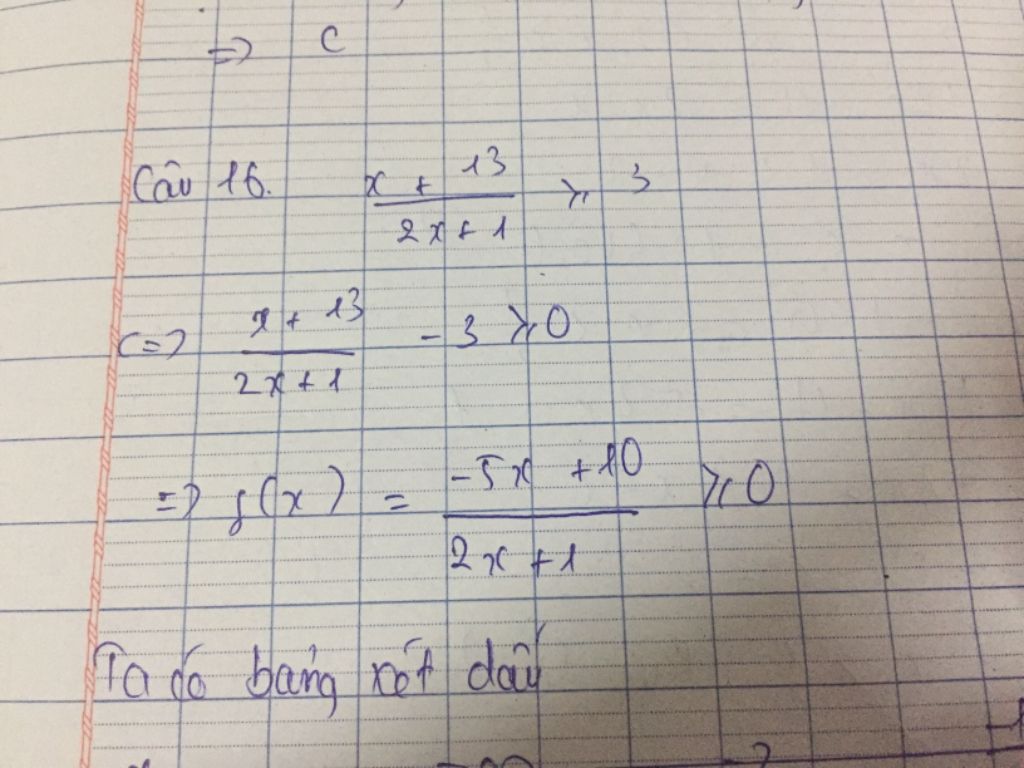 => C
Câu 16. x + 13 / 2x + 1 ⩾ 3
<=> x + 13 / 2x + 1 - 3 ⩾ 0
=> f(x) = -5x + 10 / 2x + 1 ⩾ 0
Ta có bảng xét dấu